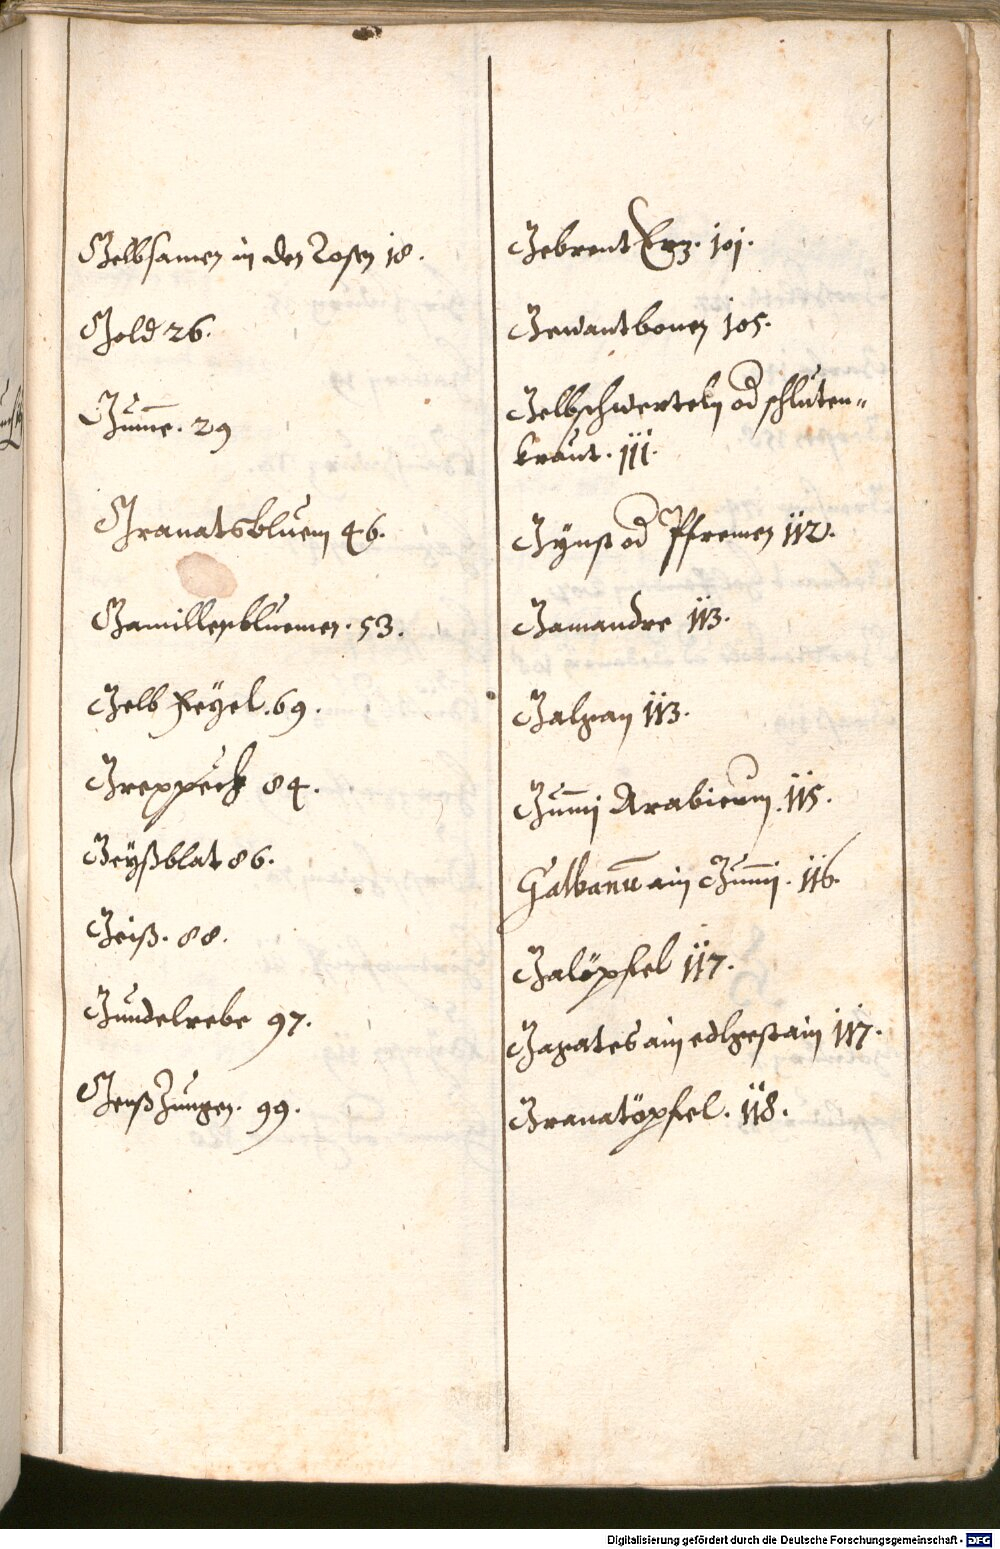 Gelbsamen in den Rosen 18.
Gold 26.
Gum̄e. 29
Granatsbluem 46.
Gamillenbluemen. 53.
Gelb Feÿel. 69.
Greppeich 84.
Geÿßblat 86.
Geiß. 88.
Gundelrebe 97.
Genßzungen. 99.
Gebrent Erz. 101.
Gewantbonen 105.
Gelbschwerteln od schluten„
kraut. 111.
Gÿnst od Pfremen 112.
Gamandre 113.
Galgan 113.
Gum̄i Arabicum. 115.
Galbanū ain Gum̄i. 116.
Galöpfel 117.
Gagates ain edlgestain 117.
Granatöpfel. 118.
Digitalisierung gefördert durch die Deutsche Forschungsgemeinschaft - DFG